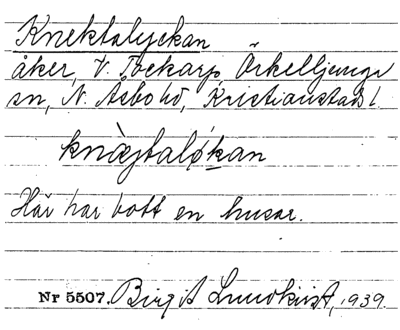 Knektalyckan
åker, V. Bockarp, Örkelljunga
sn, N. Åsbo hd, Kristianstads l.
knàgtaløkan
Här har bott en husar.
Nr 5507. Birgit Lundkvist, 1939.